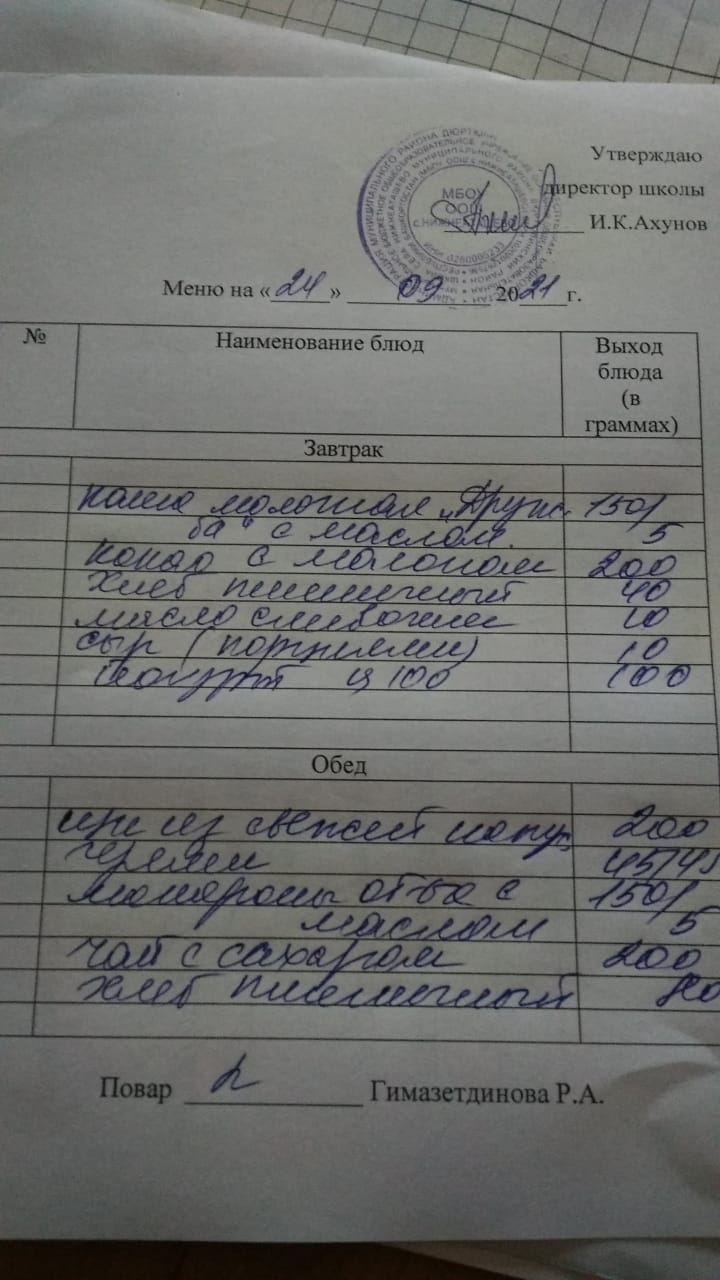 Утверждаю
директор школы
И.К.Ахунов
МБОУ
ООШ
Меню на «24» 09 2021г.
№ Наименование блюд Выход
блюда
(в
граммах)
Завтрак
каша молочная „Друж 150/
ба" с маслом 5
какао с молоком 200
хлеб пшеничный 40
масло сливочное 10
сыр (порциями) 10
100 100
Обед
щи из свежей капус 200
45/45
макароны отв с 150/
маслом 5
чай с сахаром 200
хлеб пшеничный 80
Повар Гимазетдинова Р.А.